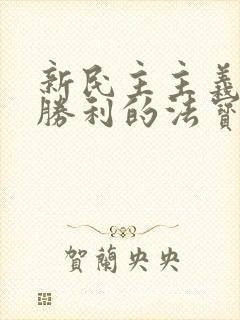 新民主主義
勝利的法寶
賀蘭央央